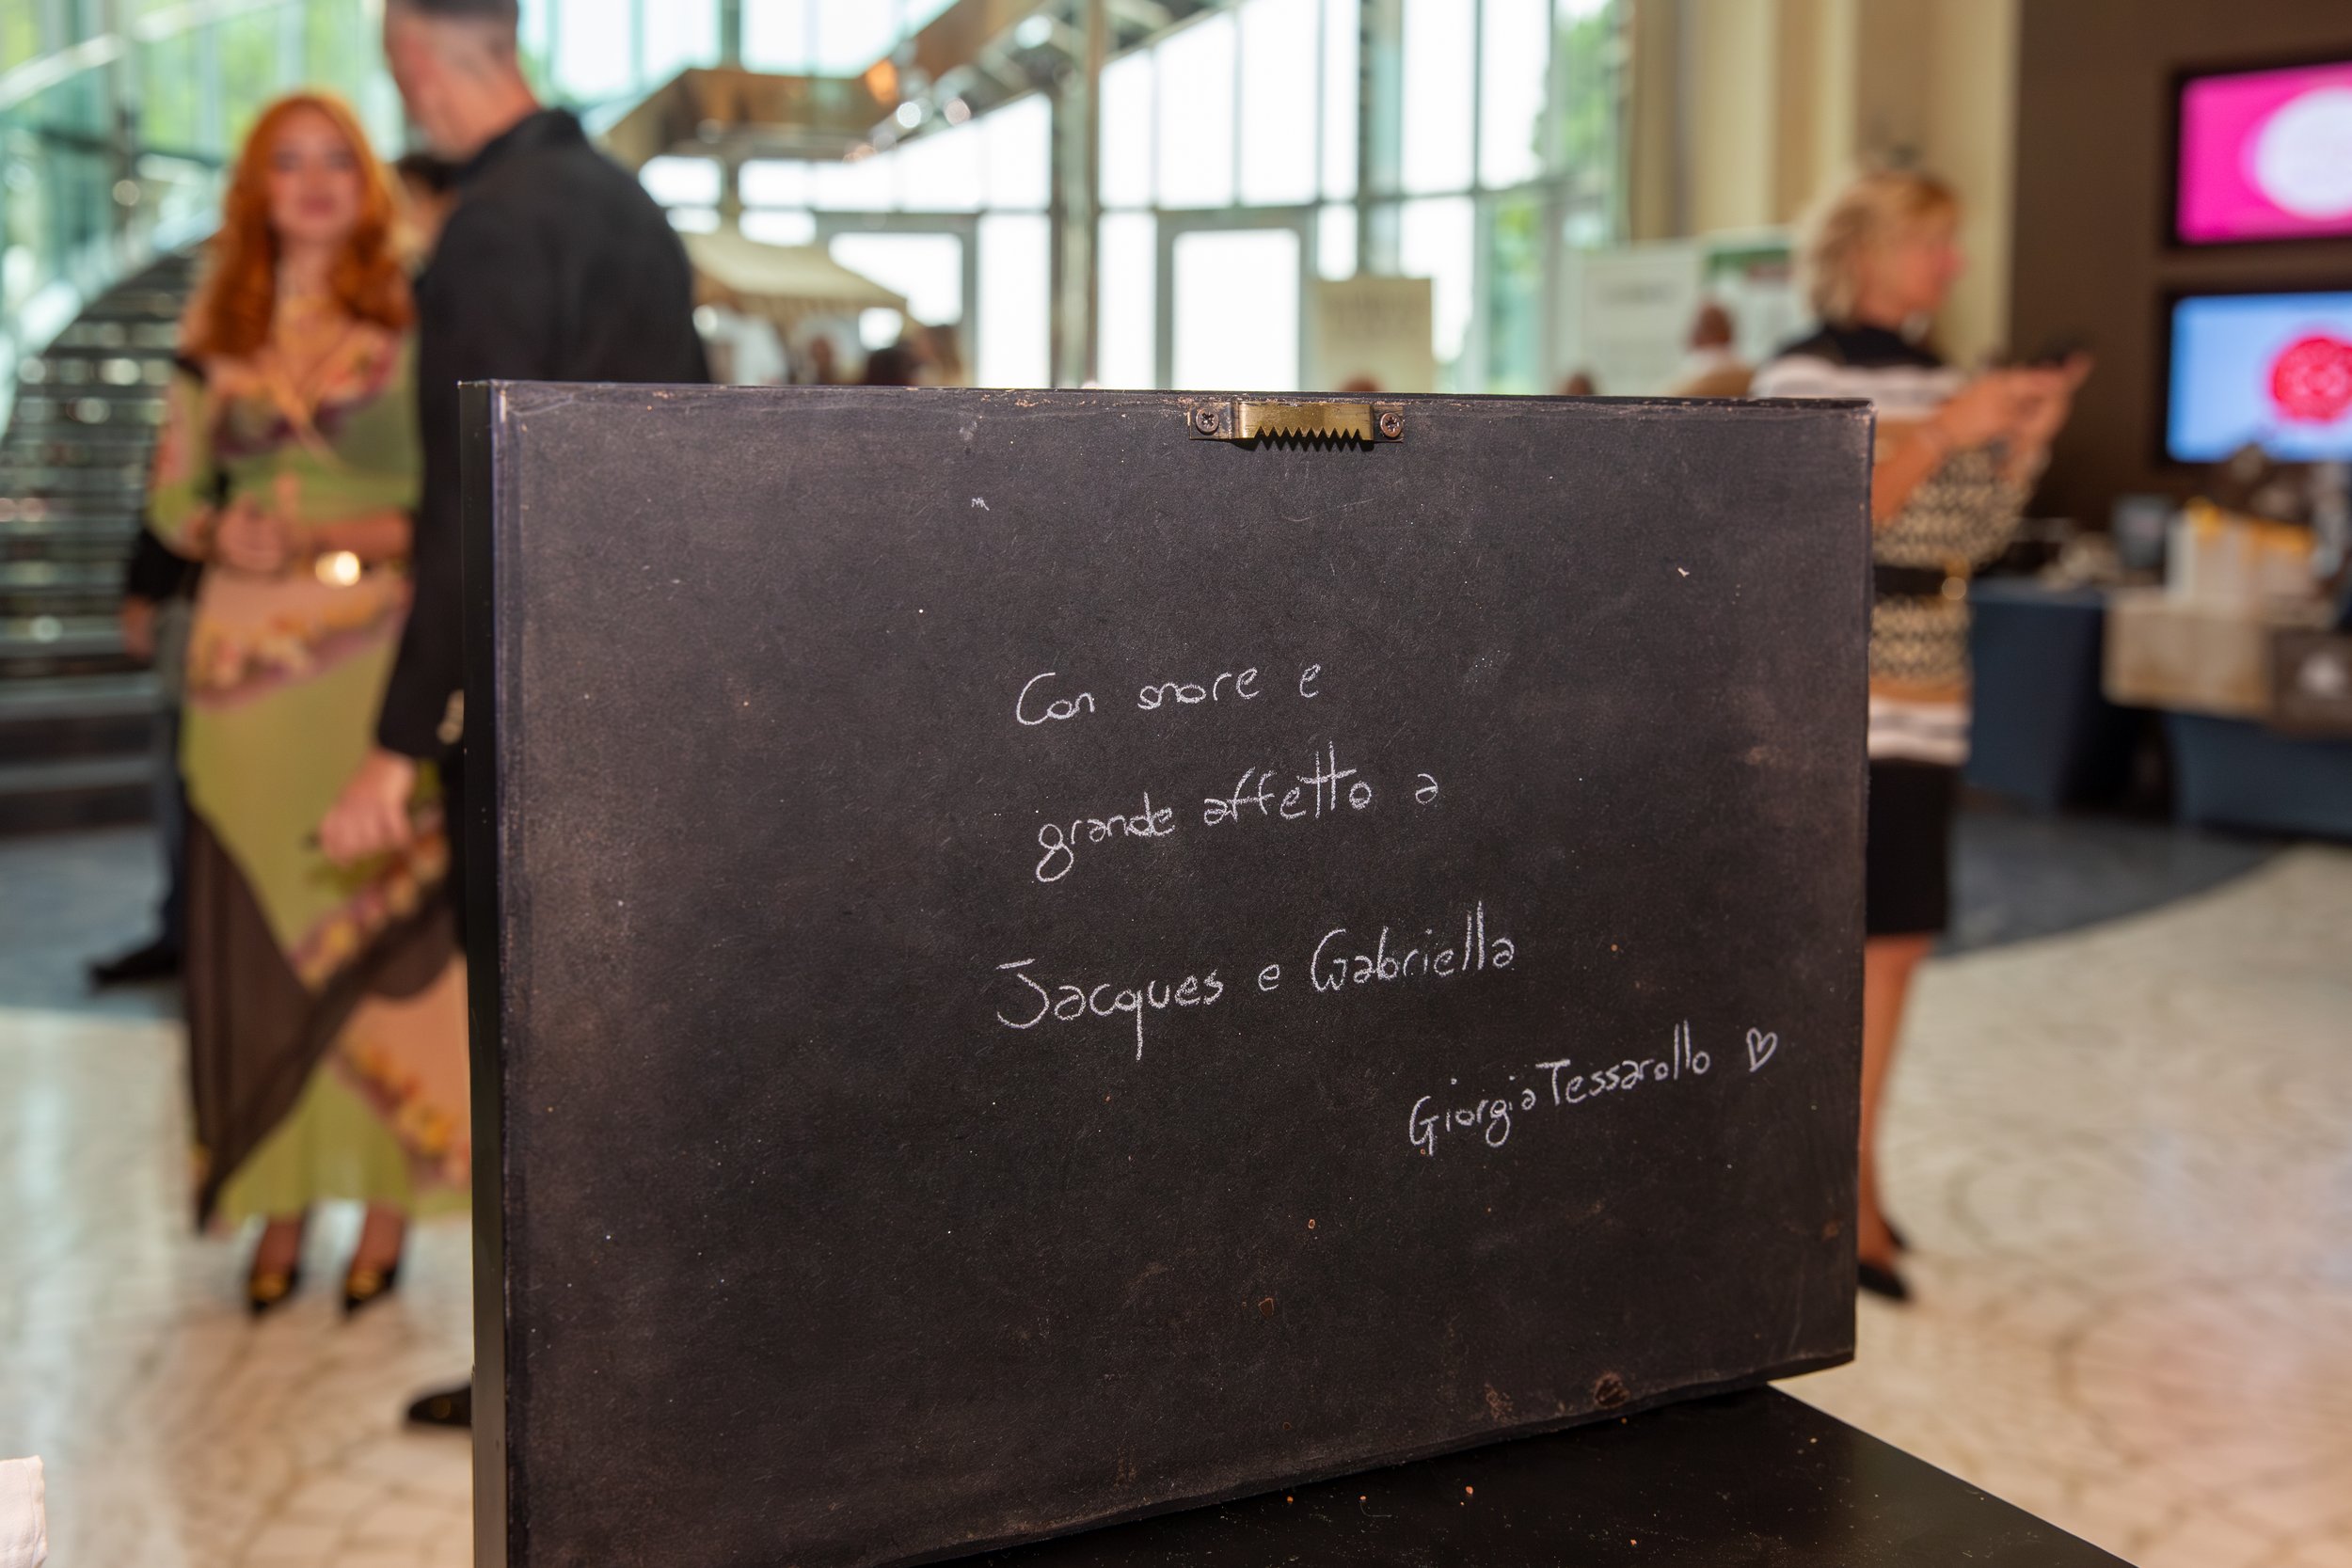 Con amore e
grande affetto a
Jacques e Gabriella
Giorgia Tessarollo ♡